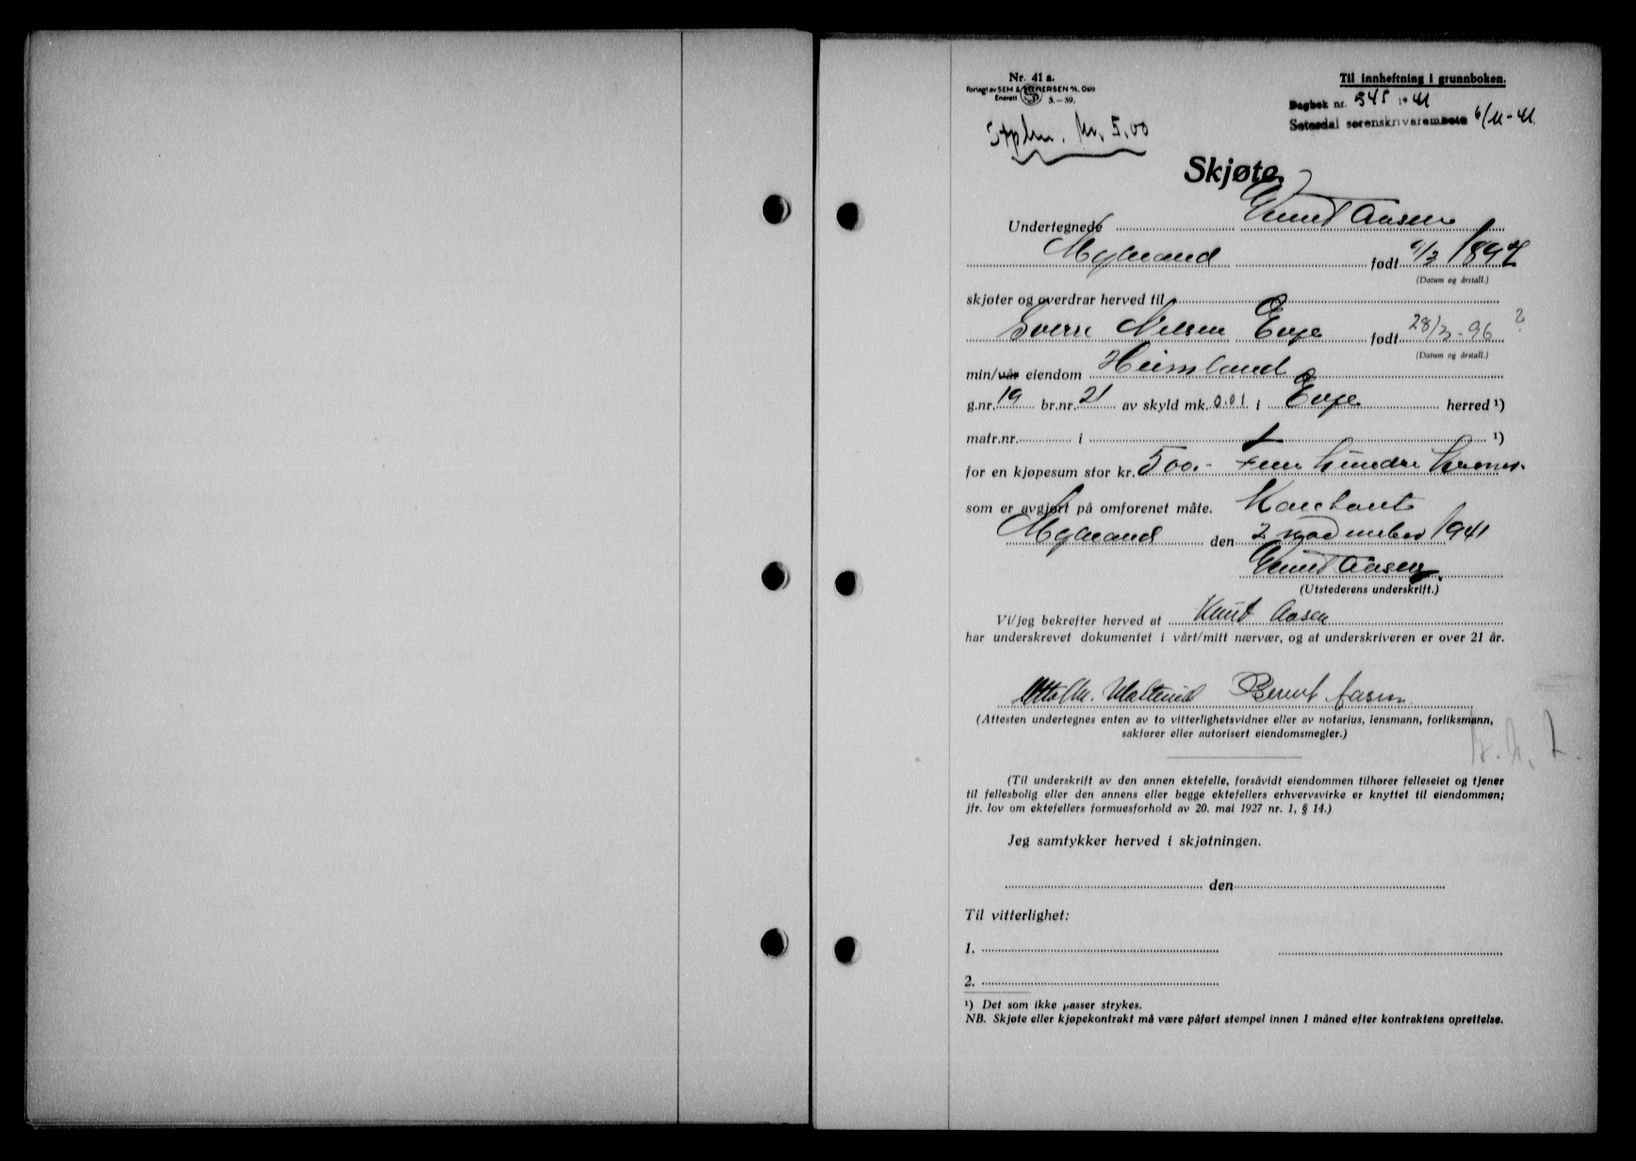 Nr. 41 a.
Forlagt av SEM & STENERSEN A/S, Oslo
Enerett 3.—39.
Til innheftning i grunnboken.
Dagbok nr. 945 1941
Setesdal sorenskriverembete 6/11-41.
Stplm. kr. 5,00
Skjøte
Undertegnede Knut Aasen
født /3 1897
(Datum og årstall.)
skjøter og overdrar herved til
Sverre Nilsen Evje født 28/3-96 ?
(Datum og årstall.)
min/vår eiendom Heimland
g.nr. 19 br.nr. 21 av skyld mk. 0.01 i Evje herred ¹)
matr.nr. i ¹)
for en kjøpesum stor kr. 500.- Fem hundre kroner.
som er avgjort på omforenet måte. Kontant
den 2 november 1941
Knut Aasen
(Utstederens underskrift.)
Vi/jeg bekrefter herved at Knut Aasen
har underskrevet dokumentet i vårt/mitt nærvær, og at underskriveren er over 21 år.
Bernt Aasen
(Attesten undertegnes enten av to vitterlighetsvidner eller av notarius, lensmann, forliksmann,
sakfører eller autorisert eiendomsmegler.)
(Til underskrift av den annen ektefelle, forsåvidt eiendommen tilhører felleseiet og tjener
til fellesbolig eller den annens eller begge ektefellers erhvervsvirke er knyttet til eiendommen;
jfr. lov om ektefellers formuesforhold av 20. mai 1927 nr. 1, § 14.)
Jeg samtykker herved i skjøtningen.
den
Til vitterlighet:
1.
2.
¹) Det som ikke passer strykes.
NB. Skjøte eller kjøpekontrakt må være påført stempel innen 1 måned efter kontraktens oprettelse.